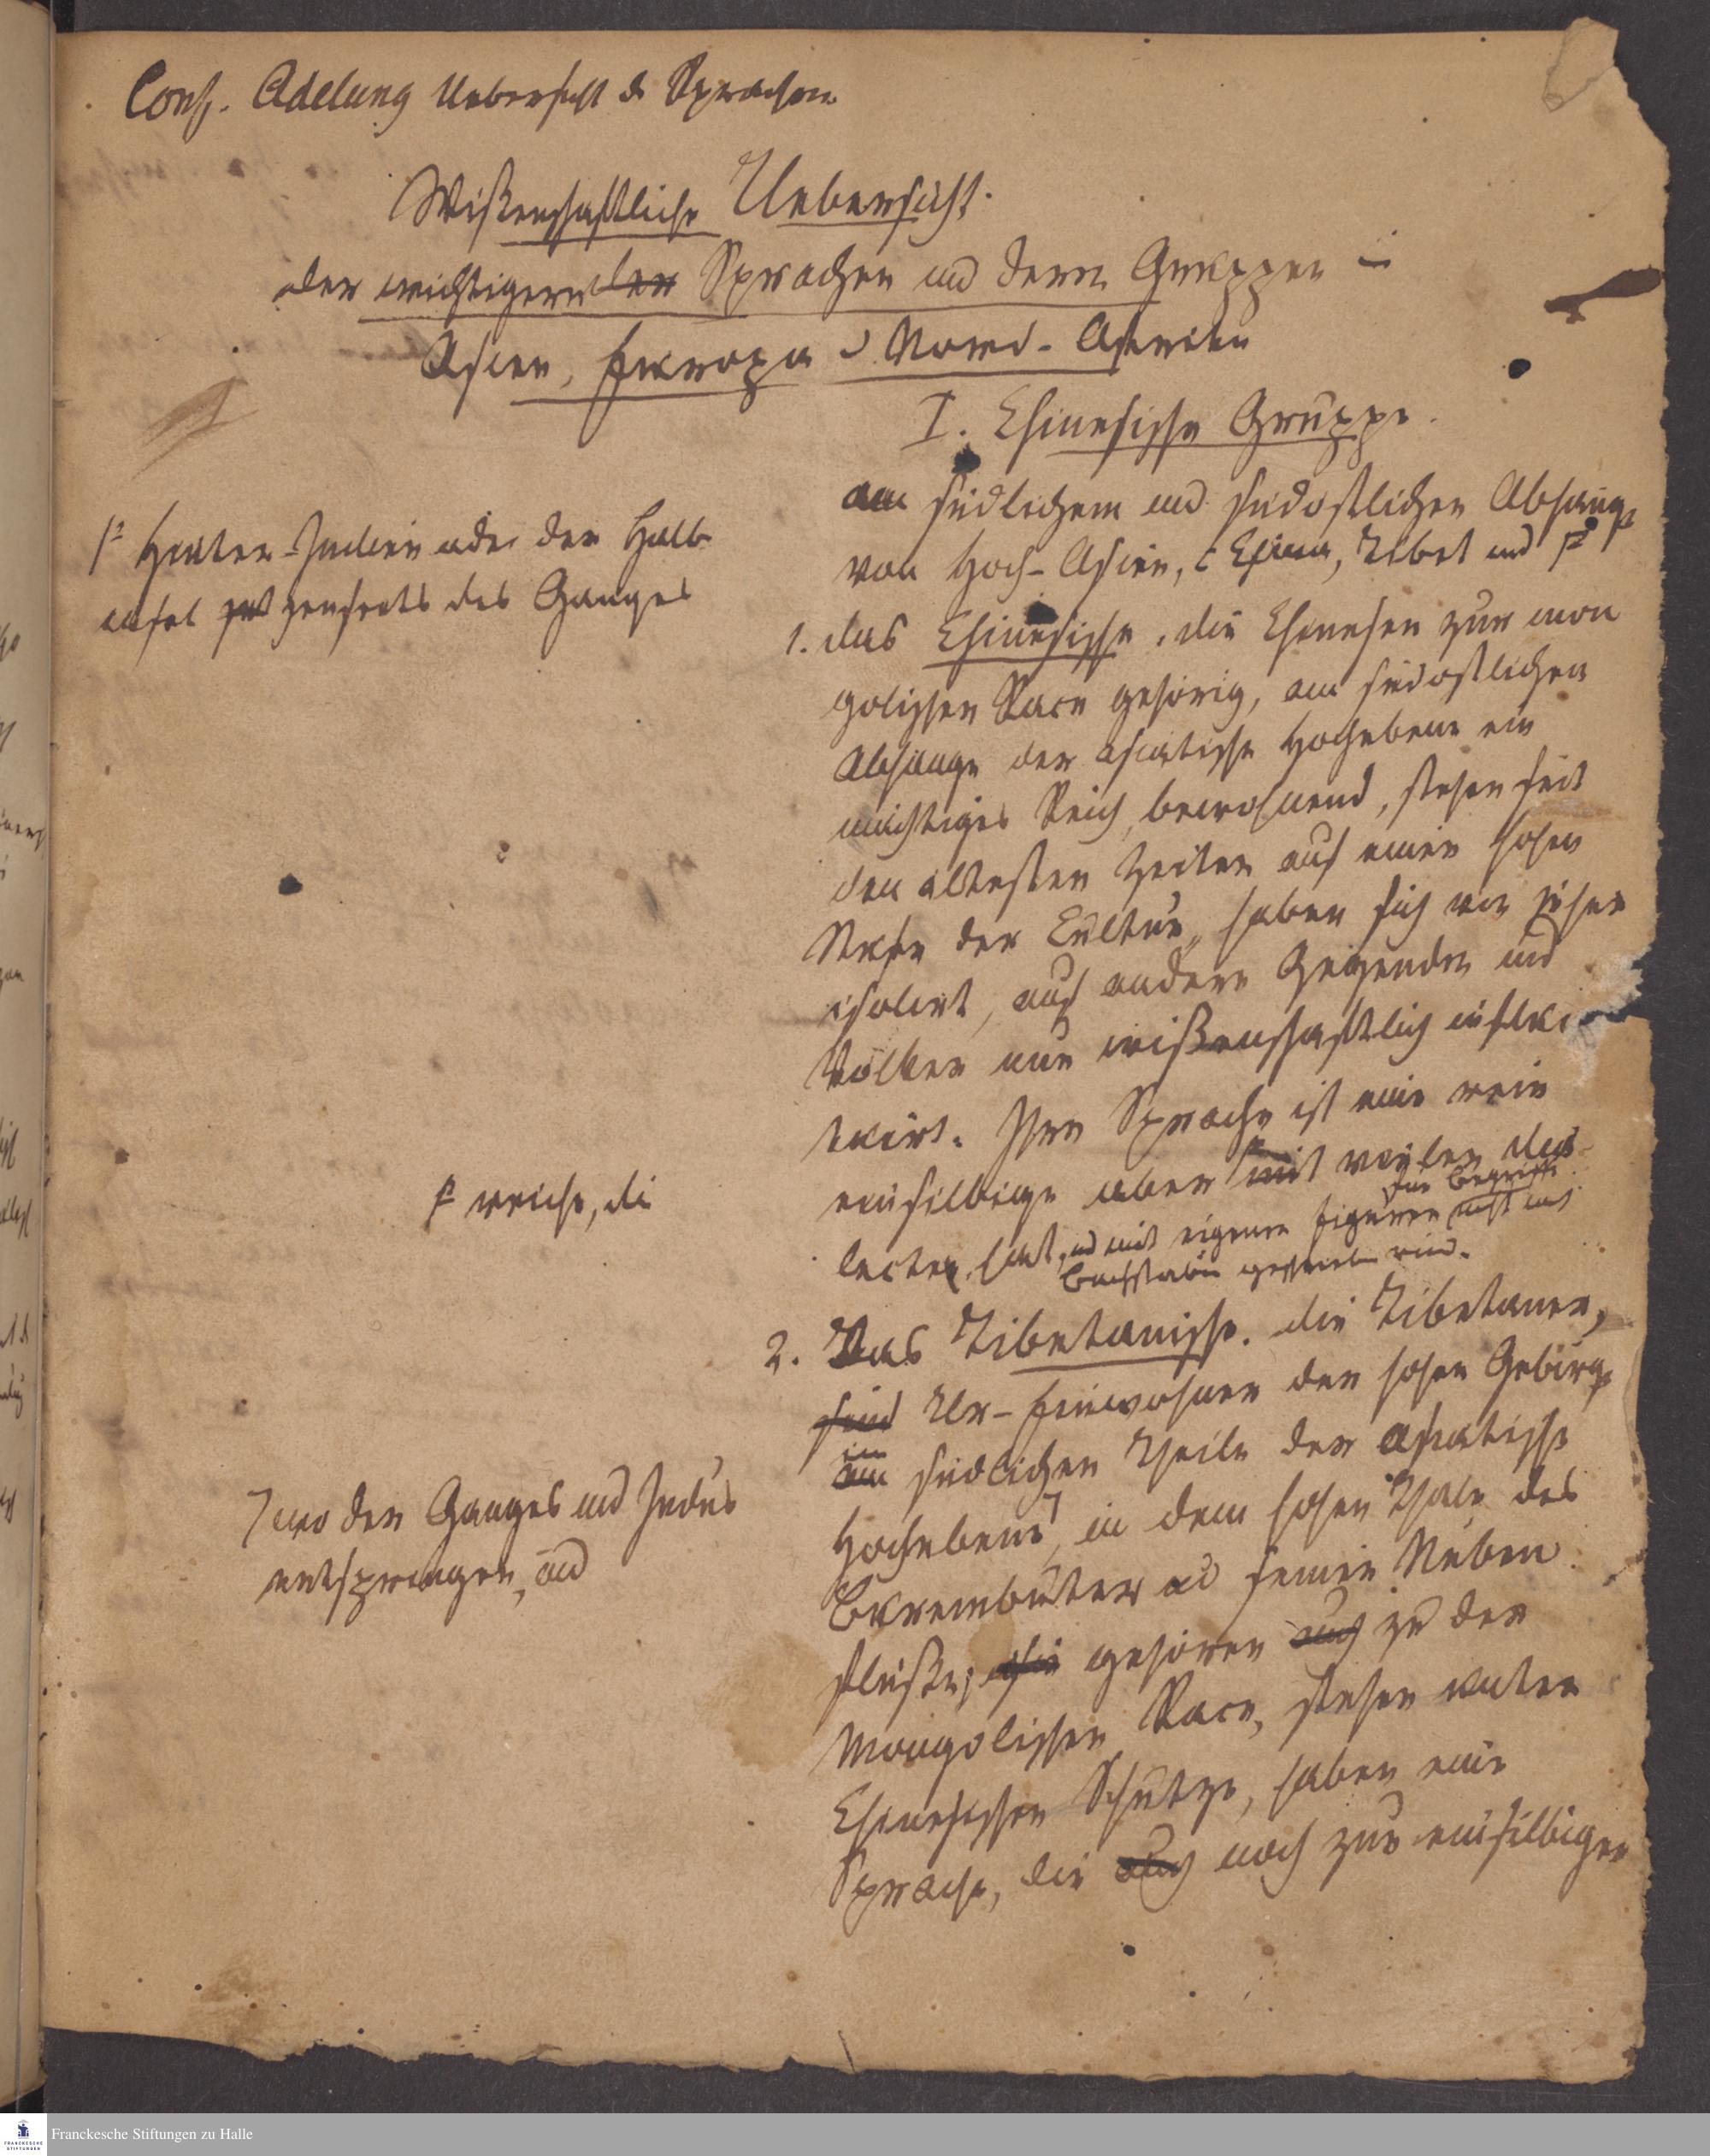 Conf. Adelung Uebersicht d. Sprachen
Wißenschaftliche Uebersicht
der wichtigern der Sprachen und deren Gruppen in
Asien, Europa u Nord-Afrika
I. Chinesische Gruppe.
am südlichem und südostlichen Abhange
von Hoch-Asien, China, Tibet und
Hinter-Indien oder der Halb
insel jenseits des Ganges
1. das Chinesische. die Chinesen zur mon
golischen Race gehörig, am südostlichen
Abhange der asiatische Hochebene ein
mächtiges Reich bewohnend, stehen seit
den altesten Zeiten auf einer hohen
Stufe der Cultur, haben sich von jeher
isolirt, auf andere Gegenden und
Völker nur wißenschaftlich influ
Ihre Sprache ist eine rein
einsilbige aber mit vielen dia
reiche, die
für Begriffe
lecten hat, und mit eignen Figuren nicht mit
Buchstaben geschrieben wird.
2. Das Tibetanische. die Tibetaner,
sind Ur-Einwohner der hohen Gebirge
im
am südlichen Theile der asiatische
Hochebene, in dem hohen Thale des
wo der Ganges und Indus
entspringen, und
Burrembuter und seiner Neben
fluße; sie gehören auch zu der
Mongolischen Race, stehen unter
Chinesischen Schutze, haben eine
Sprache, die auch noch zur einsilbigen
Franckesche Stiftungen zu Halle